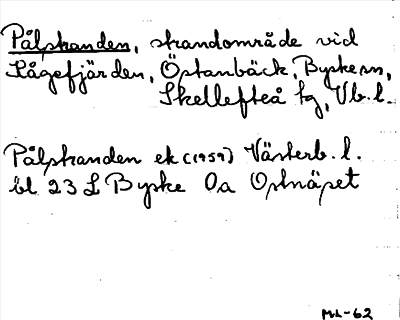 Pålskanden, strandområde vid
Kågefjärden, Östanbäck, Byske sn,
Skellefteå tg, Vb. l.
Pålskanden ek (1959) Västerb. l.
bl 23 L Byske 0a Ostnäpet
ML-62